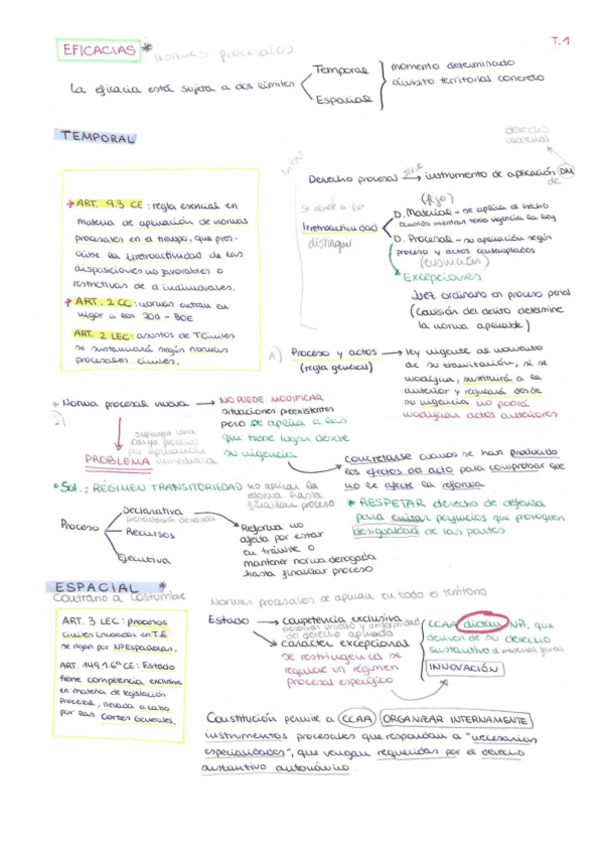 EFICACIAS * normas procesales
T.1
La eficacia está sujeta a dos límites
Temporal
Espacial
momento determinado
ámbito territorial concreto
TEMPORAL
derecho
material
Intro
Derecho procesal → sirve instrumento de aplicación de DM
ART. 9.3 CE: regla esencial en
materia de aplicación de normas
procesales en el tiempo, que pro-
híbe la irretroactividad de las
disposiciones no favorables o
restrictivas de d. individuales.
ART. 2 CC: normas entran en
vigor a los 20d - BOE
ART 2 LEC: asuntos de T Civiles
se sustanciará según normas
procesales civiles.
Irretroactividad
distinguir
(fijo)
D. Material - se aplica al hecho
mientras vigencia la ley
D. Procesal - su aplicación según
proceso y actos contemplados
(evolución)
Excepciones
Juez ordinario en proceso penal
(comisión del delito determine
la norma aplicable)
A) Proceso y actos
(regla general)
→ ley vigente al momento
de su tramitación, si se
modifica, sustituirá a la
anterior y regulará desde
su vigencia no podrá
modificar actos anteriores
* Norma procesal nueva → NO PUEDE MODIFICAR
situaciones preexistentes
pero se aplica a las
que tiene lugar desde
su vigencia
suponga una
carga procesal
por aplicación
inmediata
PROBLEMA
concretarse cuando se han producido
los efectos del acto para comprobar que
no le afecte la reforma
* Sol.: RÉGIMEN TRANSITORIEDAD no aplicar la
reforma hasta
finalizar proceso
* RESPETAR derecho de defensa
para evitar perjuicios que provoquen
desigualdad de las partes
Proceso
Declarativa
Recursos
Ejecutiva
Reforma no
afecta por estar
en trámite o
mantener norma derogada
hasta finalizar proceso
ESPACIAL *
Contrario a costumbre
Normas procesales se aplican en todo el territorio
ART. 3 LEC: procesos
civiles incoados en T.E
se rigen por NP Españolas.
ART. 149.1.6ª CE: Estado
tiene competencia exclusiva
en materia de legislación
Procesal, llevada a cabo
por las Cortes Generales.
Estado
→ competencia exclusiva
unidad y uniformidad
del derecho aplicado
→ carácter excepcional
se restringen CA se
requiere un régimen
procesal específico
CCAA dictan NP. que
deriven de su derecho
sustantivo o material foral
INNOVACIÓN
Constitución permite a CCAA ORGANIZAR INTERNAMENTE
instrumentos procesales que respondan a "necesarias
especialidades", que vengan requeridas por el derecho
sustantivo autonómico.